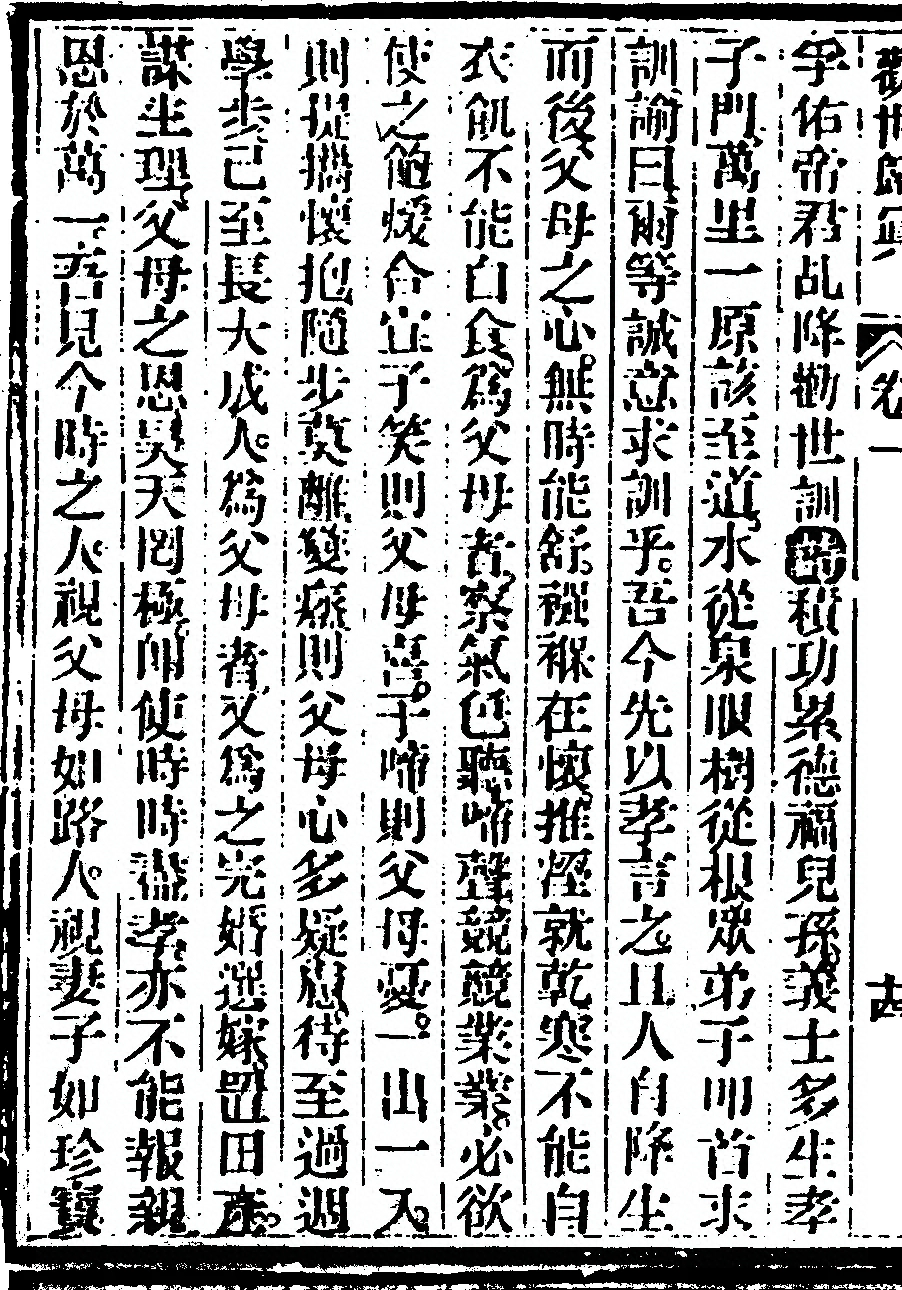 勸世歸眞 卷一 古
孚佑帝君乩降勸世訓 詩 積功累德福兒孫義士多生孝
子門萬里一原該至道水從泉眼樹從根眾弟子叩首求
訓諭曰爾等誠意求訓乎吾今先以孝言之且人自降生
而後父母之心無時能舒襁褓在懷推溼就乾寒不能自
衣飢不能自食爲父母者察氣色聽啼聲競競業業必欲
使之飽煖合宜子笑則父母喜子啼則父母憂一出一入
則提攜懷抱隨步莫離變痧則父母心多疑慮待至過週
學步已至長大成人爲父母者又爲之完婚選嫁置田產
謀生理父母之恩昊天罔極卽使時時盡孝亦不能報親
恩於萬一吾見今時之人視父母如路人視妻子如珍寶